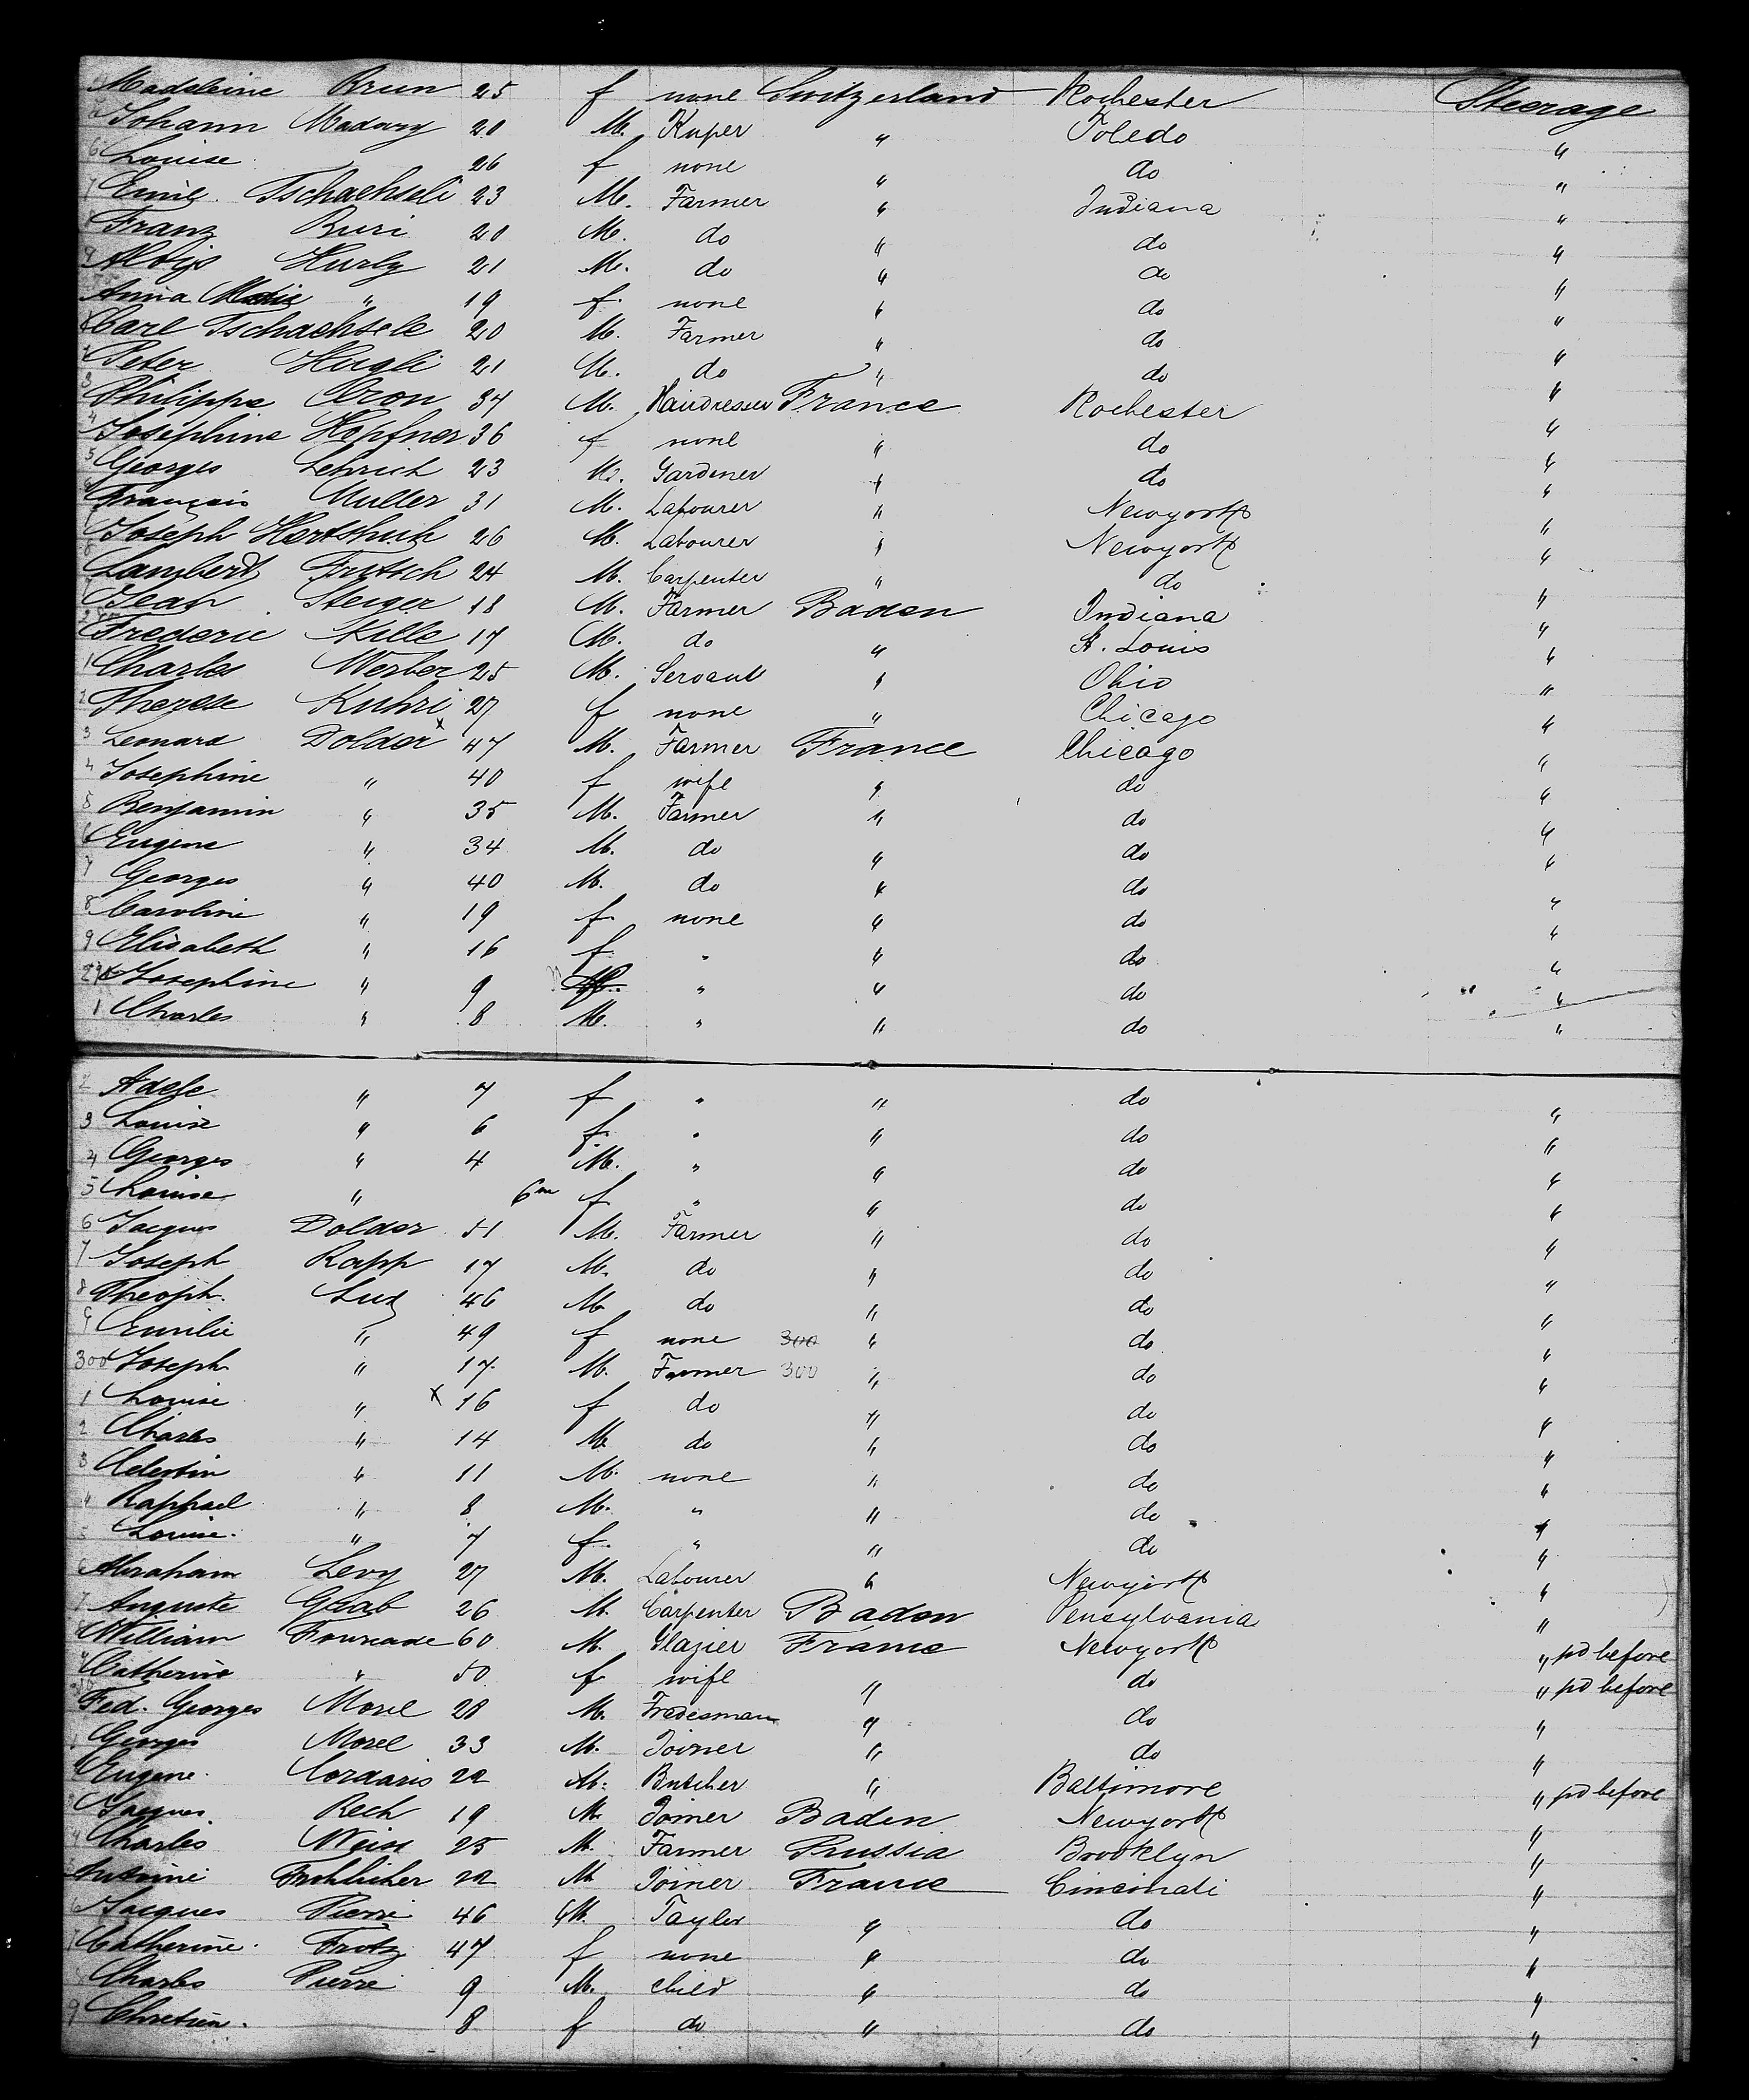 Madeleine Brun 25 f none Switzerland Rochester Steerage
Johann Madary 20 M. Kuper " Toledo "
6 Louise 26 f none " do "
7 Emile Tschaehseli 23 M. Farmer " Indiana "
Franz Buri 20 M. do " do "
9 Aloijs Hurly 21 M. do " do "
Anna Marie " 19 f. none " do "
Carl Tschaehsele 20 M. Farmer " do "
Peter Hugli 21 M. do " do "
3 Philippe Oron 34 M. Hairdresser France Rochester "
4 Josephine Hopfner 36 f none " do "
5 Georges Lehrich 23 M. Gardener " do "
François Muller 31 M. Labourer " Newyork "
Joseph 26 M. Labourer " Newyork "
8 Lambert Fritsch 24 M. Carpenter " do "
Jean Steiger 18 M. Farmer Baden Indiana "
Frederic Kille 17 M. do " St. Louis "
1 Charles Werber 25 M. Servant " Ohio "
2 Therese Kuhri 27 f none " Chicago "
3 Leonard Dolder x 47 M. Farmer France Chicago "
4 Josephine " 40 f wife " do "
5 Benjamin " 35 M. Farmer " do "
6 Eugene " 34 M. do " do "
7 Georges " 40 M. do " do "
8 Caroline " 19 f. none " do "
9 Elisabeth " 16 f. " " do "
290 Josephine " 9 " " do "
1 Charles " 8 M. " " do "
2 Adele " 7 f " " do "
3 Louise " 6 f. " " do "
4 Georges " 4 M. " " do "
5 Louise " 6m f " " do "
6 Jacques Dolder 51 M. Farmer " do "
7 Joseph Rapp 17 M. do " do "
8 Theoph. Lutz 46 M do " do "
9 Emilie " 49 f none 300 " do "
300 Joseph " 17. M. Farmer 300 " do "
1 Louise " x 16 f do " do "
2 Charles " 14 M. do " do "
3 Celestin " 11 M. none " do "
4 Raphael " 8 M. " " do "
5 Louise. " 7 f. " " do "
6 Abraham Levy 27 M. Labourer " Newyork "
7 Auguste Grab 26 M. Carpenter Baden Pensylvania "
William Fourcade 60 M. Glazier France Newyork " pd before
Catherine " 50 f wife " do " pd before
Fed. Georges Morel 28 M. Tradesman " do "
Georges Morel 33 M. Joiner " do "
Eugene. Cordaris 22 M. Butcher " Baltimore " pd before
Jacques Rech 19 M. Joiner Baden Newyork "
Charles Weiss 25 M. Farmer Prussia Brooklyn "
Antoine Frohlicher 22 M Joiner France Cincinati "
6 Jacques Pierre 46 M. Taylor " do "
Catherine. Frotz 47 f none " do "
Charles Pierre 9 M. child " do "
9 Chretien. 8 f do " do "